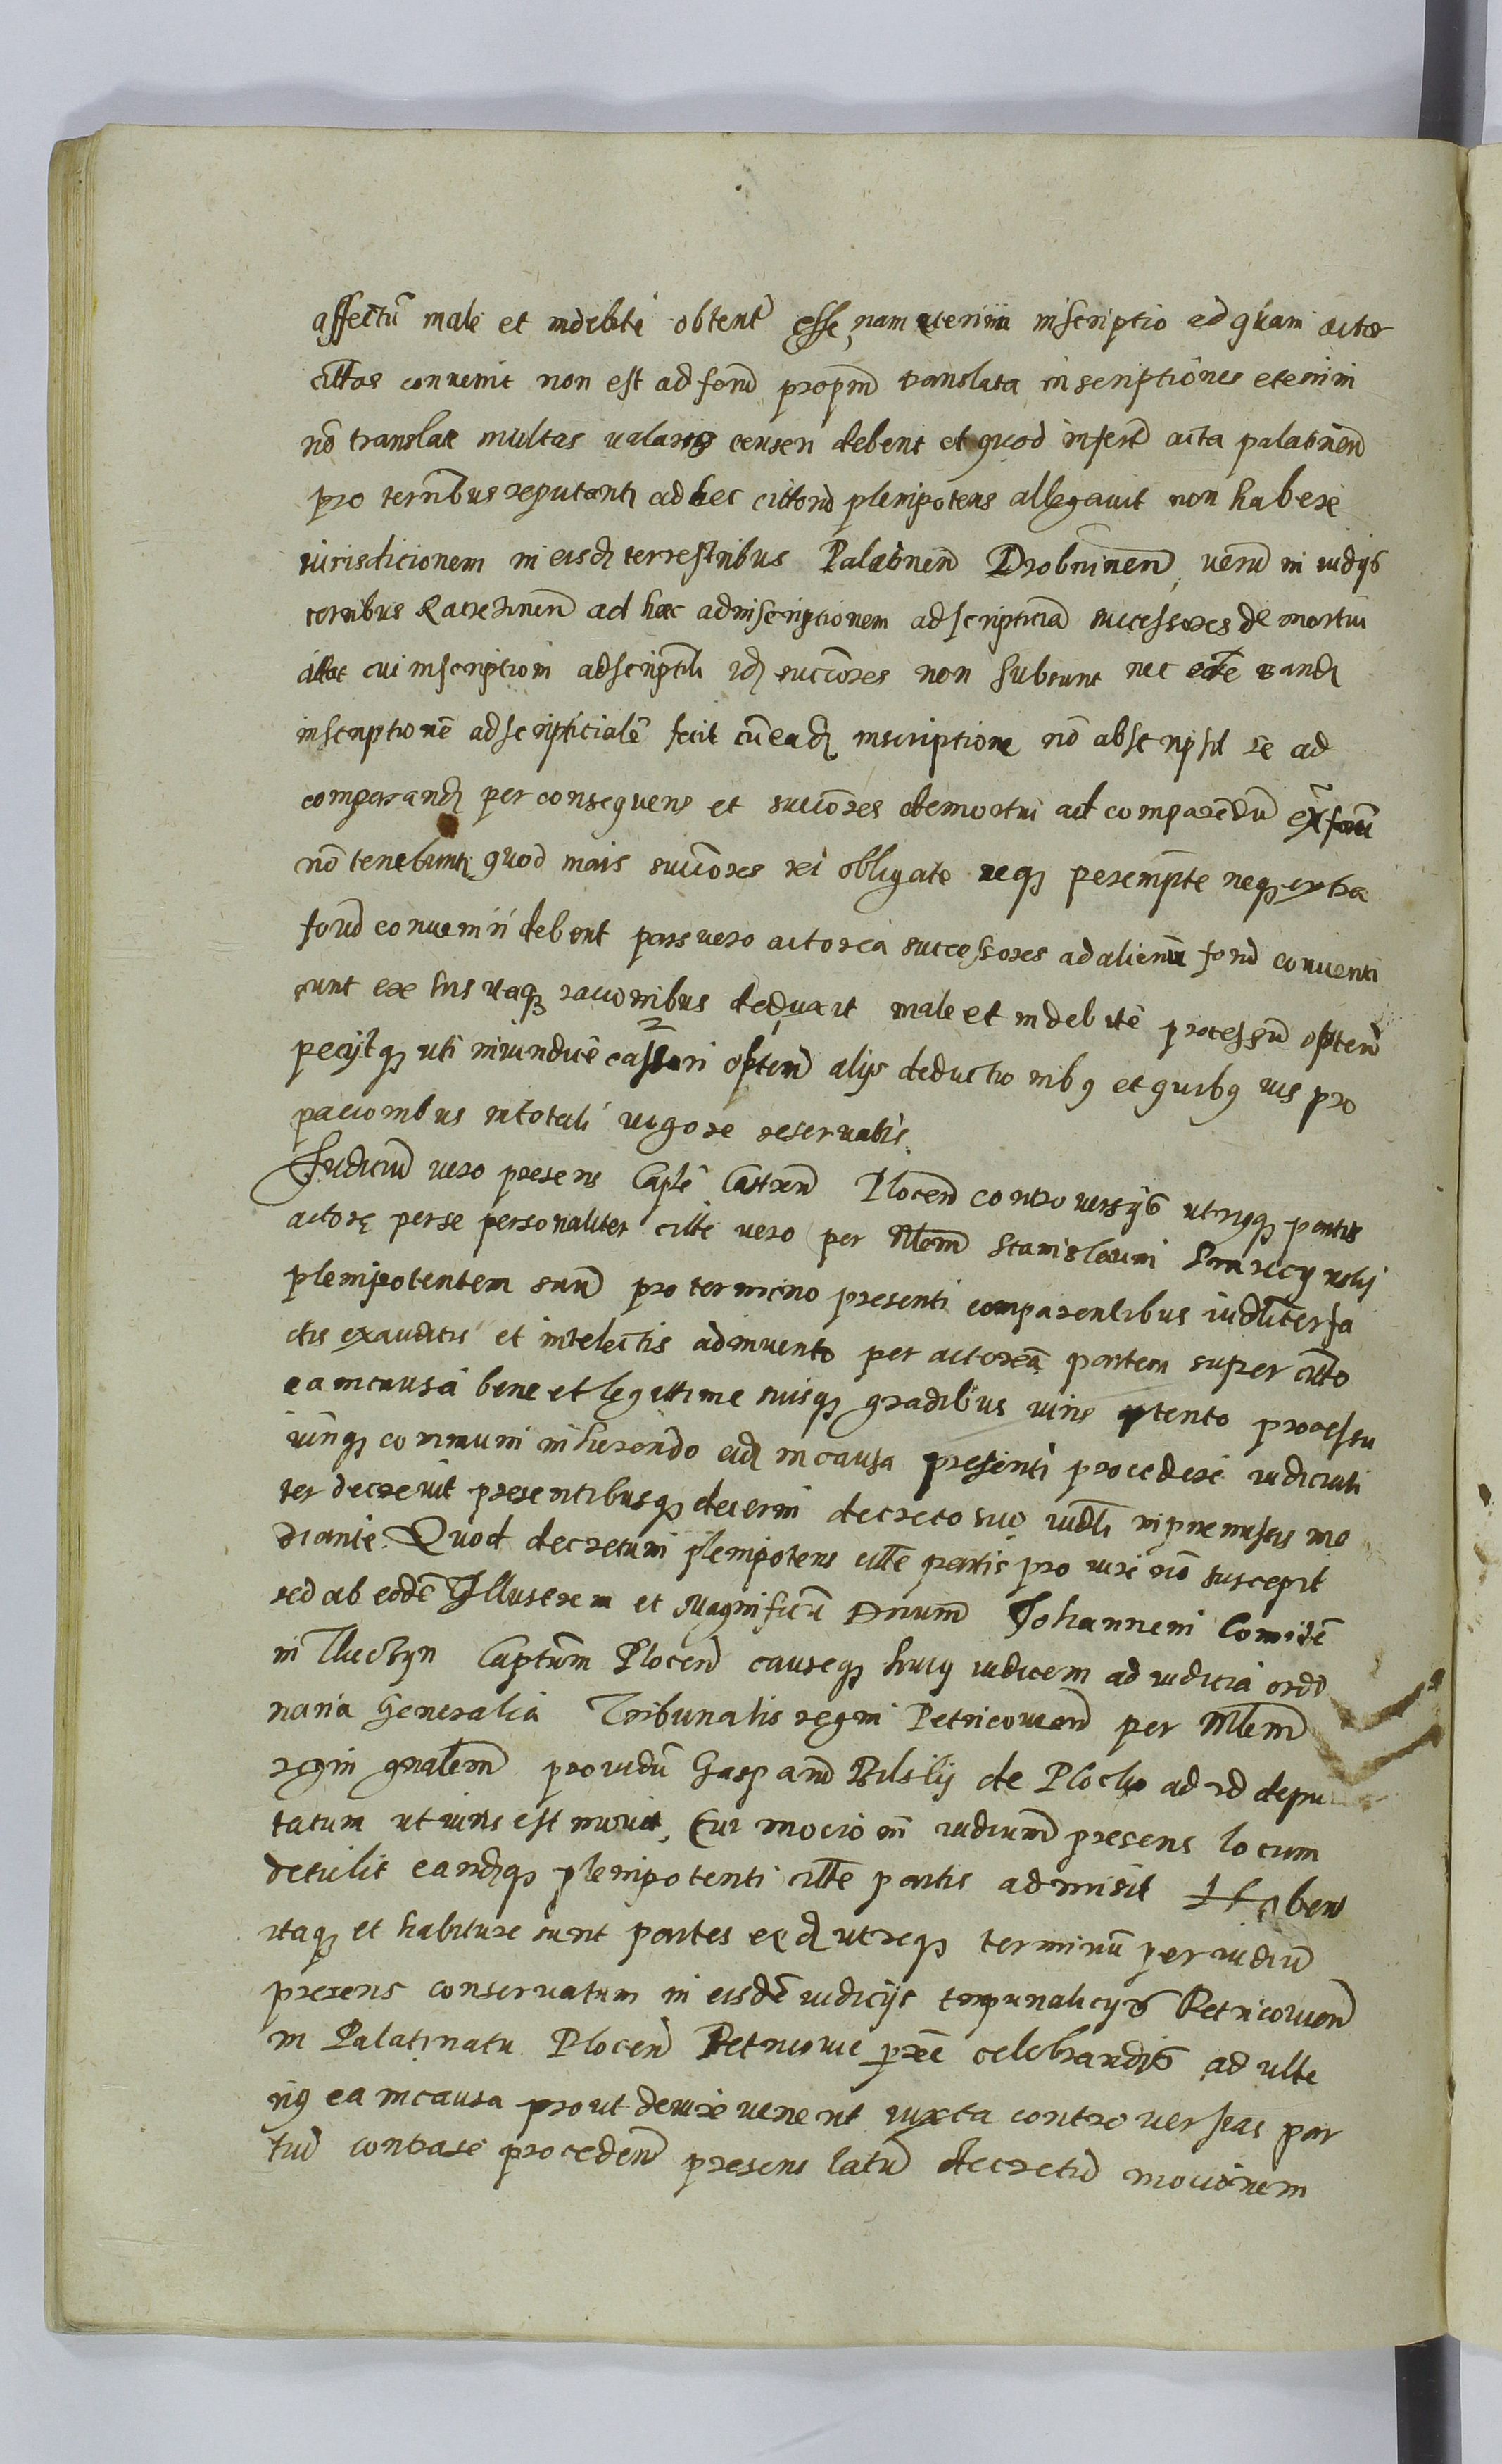 affectũ male et indebite obtent̃ esse, nam etenim inscriptio ad quam actor
cittas convenit non est ad forũ propm̃ translata inscriptiones etenim
nõ translate multas censeri debent et quod inserť acta palatineñ
pro terribus reputantꝫ ad hec cittorũ plenipotens allegavit non habere
iurisdicionem in eisdꝫ terrestribus Palatineñ Drobnineñ, verũ in iudijs
terribus Raczezineñ ad hac ad inscriptionem adscripticiã successores demortui
cui inscriptioni successores non subsunt nec
inscriptionẽ adscripticialẽ fecit cũ eadꝫ inscriptione nõ abscripsit se ad
comparandꝫ per consequens et succõres demortui ad comparẽdũ extra forũ
nõ tenebuntꝫ quod mais succõres rei obligate neqꝫ perempte neqꝫ extra
forũ conueniri debent pars vero actorea successores ad alienũ forũ conventi
sunt ex his itaqꝫ racionibus deduxit male et indebite processũ obtenũ
pecijtqꝫ uti iniuridice cassari obtenũ alijs deductionibꝫ et quibꝫ ius pro
pacionibus in totali vigore reservatis.
Judiciũ vero presens Capłe Castreñ Ploceñ controversijs utriusqꝫ partis
actore per se personaliter citte vero per Nłem̃ Stanislaum
plenipotentem suũ pro termino presenti comparentibus iudłiter fa
ctis exauditis et intelectis adinvento per actoreã partem super citto
ea in causa bene et legittime suisqꝫ gradibus iuris obtento processu
iuriqꝫ communi inherendo eadꝫ in causa presenti procedere iudiciali
ter decrevit presentibusqꝫ decernit decreto suo iudłi in premissis me
diante. Quod decretum plenipotens citte partis pro iure nõ suscepit
sed ab eodẽ Illustrem et Magnificũ Dnum̃ Johannem Comitẽ
in Thečzyn Captum̃ Ploceñ causeqꝫ huiꝫ iudicem ad iudicia ordi
naria Generalia Tribunalis regni Petricovieñ per Mlem̃
regni gnałem̃ providũ Gasparũ de Plocko ad id depu
tatum ut iuris est movit, Cui mocioni iudicium̃ presens locum
detulit eandꝫqꝫ plenipotenti citte partis admisit Haben
itaqꝫ et habiture sunt partes eedꝫ utreqꝫ terminũ per iudiciũ
presens conservatum in eisdẽ iudicijs tripunalicijs Petricovieñ
in Palatinatu Ploceñ Petricovie celebrandis ad ulte
riꝫ ea in causa prout de iure venerit iuxta controversias par
tiũ contra se procedeñ presens latũ decretũ mocionem